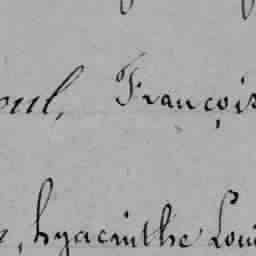 oul, François
, hyacinthe Loui